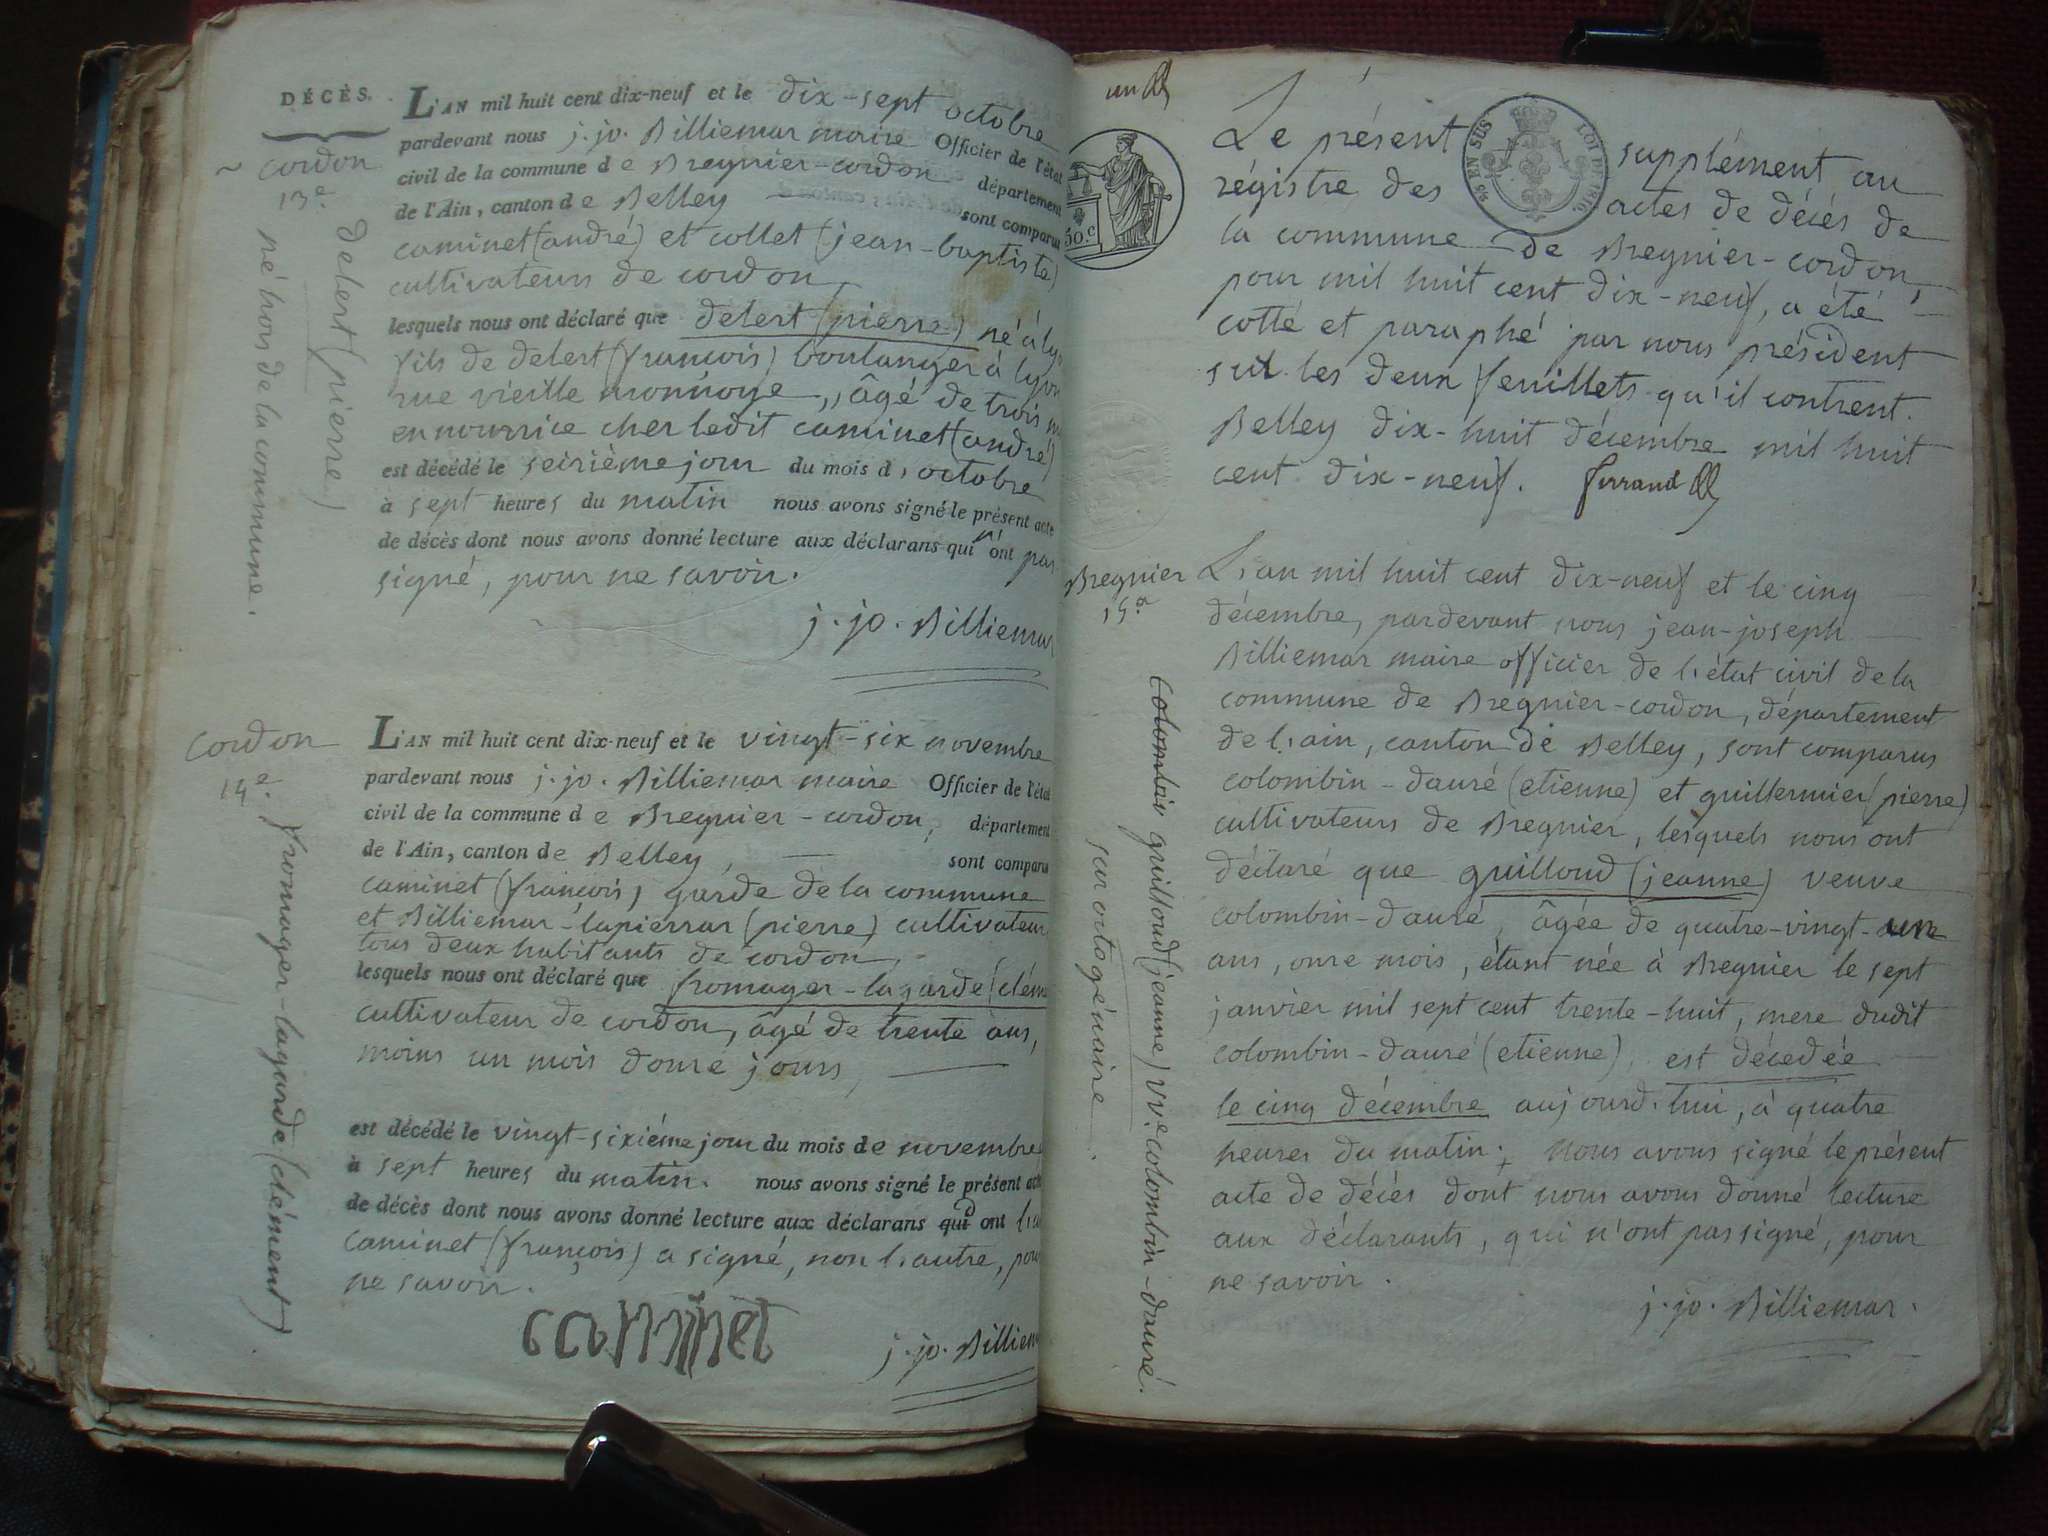 DÉCÈS.
cordon
13e.
delert (pierre)
né hors de la commune.
L'AN mil huit cent dix-neuf et le dix-sept octobre
pardevant nous j. jo. Billiemar maire Officier de l'état
civil de la commune de Bregnier-cordon département
de l'Ain, canton de Belley sont comparus
caminet (andré) et collet (jean-baptiste)
cultivateurs de cordon
lesquels nous ont déclaré que delert (pierre) né à lyon
fils de delert (françois) boulanger à lyon
rue vieille monnoye, âgé de trois
en nourrice chez ledit caminet (andré)
est décédé le seizième jour du mois d'octobre
à sept heures du matin nous avons signé le présent acte
de décès dont nous avons donné lecture aux déclarans qui n'ont pas
signé, pour ne savoir.
j. jo. Billiemar
cordon
14e.
fromager-lagarde (clément)
L'AN mil huit cent dix-neuf et le vingt-six novembre
pardevant nous j. jo. Billiemar maire Officier de l'état
civil de la commune de Bregnier-cordon, département
de l'Ain, canton de Belley, sont comparus
caminet (françois) garde de la commune
et Billiemar-lapierrar (pierre) cultivateur
tous deux habitants de cordon,
lesquels nous ont déclaré que fromager-lagarde (clém
cultivateur de cordon, âgé de trente ans,
moins un mois douze jours,
est décédé le vingt-sixiéme jour du mois de novembre
à sept heures du matin. nous avons signé le présent acte
de décès dont nous avons donné lecture aux déclarans ont
caminet (françois) a signé, non l'autre, pour
ne savoir.
caminet
j. jo. Billiem
un
50.c
Le présent supplément au
régistre des actes de décès de
la commune de Bregnier-cordon
pour mil huit cent dix-neuf, a été
cotté et paraphé par nous président
sur les deux feuillets qu'il contient.
Belley dix-huit décembre mil huit
cent dix-neuf. ferrand
EN SUS
LOI DE 1816
Bregnier
15e
guilloud (jeanne) vve. colombin-dauré.
sur octogénaire.
L'an mil huit cent dix-neuf et le cinq
décembre, pardevant nous jean-joseph
Billiemar maire officier de l'état civil de la
commune de Bregnier-cordon, département
de l'ain, canton de Belley, sont comparus
colombin-dauré (etienne) et guillermier (pierre)
cultivateurs de Bregnier, lesquels nous ont
déclaré que guilloud (jeanne) veuve
colombin-dauré, âgée de quatre-vingt-un
ans, onze mois, étant née à Bregnier le sept
janvier mil sept cent trente-huit, mere dudit
colombin-dauré (etienne), est décedée
le cinq décembre aujourd'hui, à quatre
heures du matin; nous avons signé le présent
acte de décès dont nous avons donné lecture
aux déclarants, qui n'ont pas signé, pour
ne savoir.
j. jo. Billiemar.